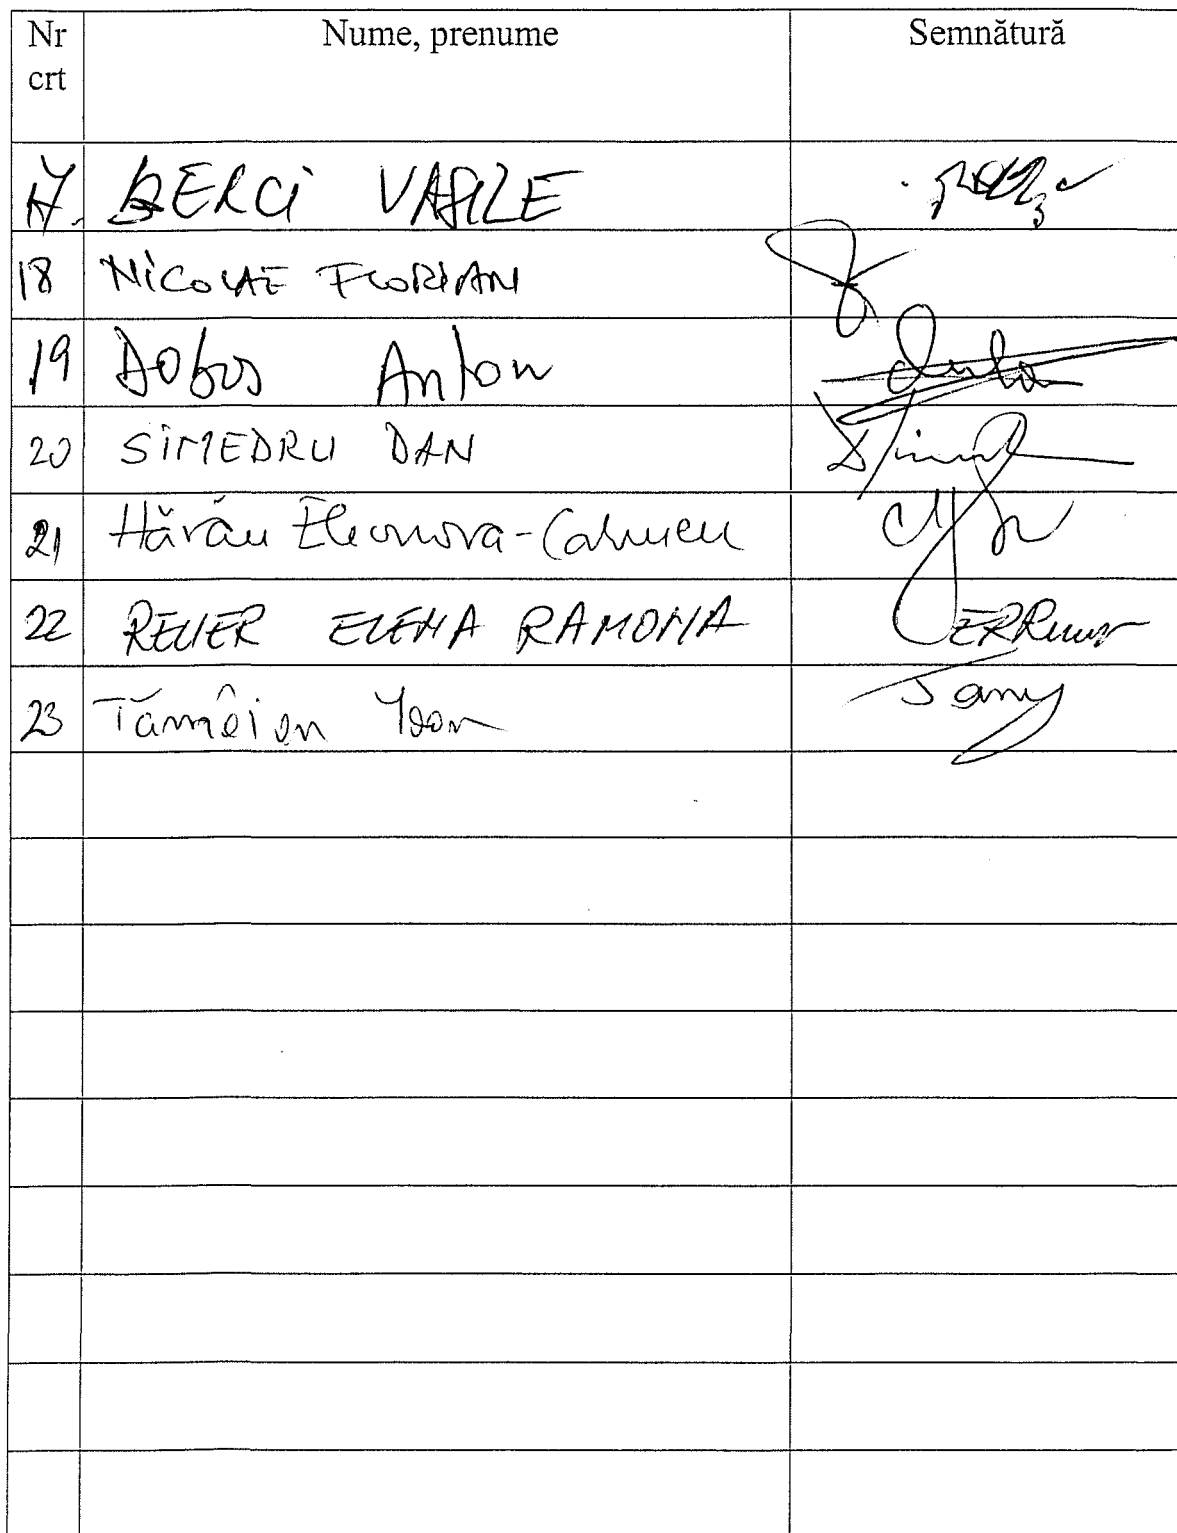 Nr crt Nume, prenume Semnătură
17. BERCI VASILE
18 NICOLAE FLORIAN
19 Dobos Anton
20 SIMEDRU DAN
21 Hărău Eleonora-Carmen
22 RELLER ELENA RAMONA
23 Tămâian Ioan